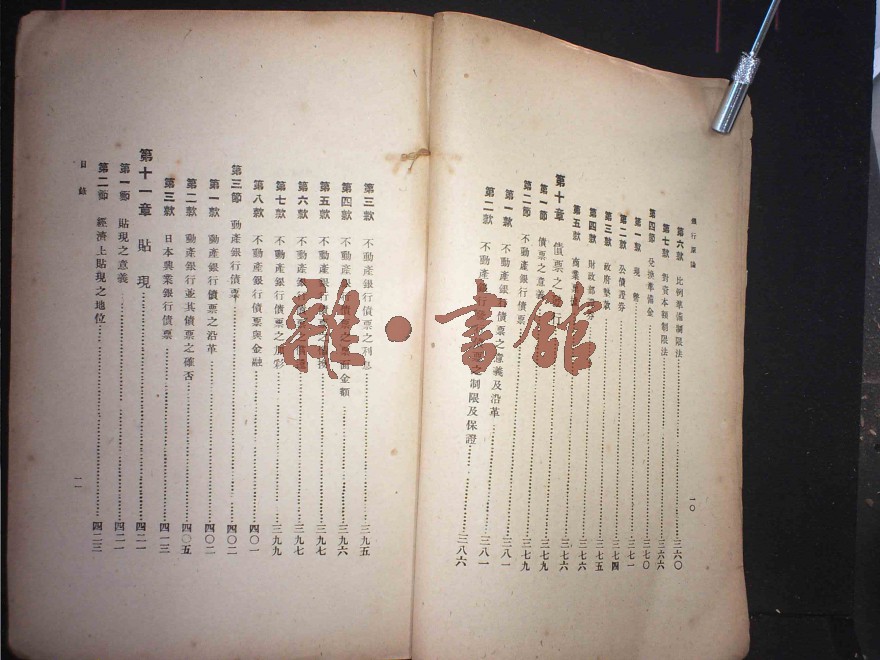 銀行原論
第六款 比例準備制限法 三六〇
第七款 對資本額制限法 三六六
第四節 兌換準備金 三七〇
第一款 現幣 三七一
第二款 公債證券 三七四
第三款 政府墊款 三七五
第四款 財政部 三七六
第五款 商業 三七六
第十章 債票之
第一節 債票之意義 三七九
第二節 不動產銀行債票 三七九
第一款 不動產銀行債票之意義及沿革 三八一
第二款 不動產銀行 制限及保證 三八六
一〇
第三款 不動產銀行債票之利息 三九五
第四款 不動產銀行債票之票面金額 三九六
第五款 不動產銀行債票之 三九七
第六款 不動產銀行債票之 三九七
第七款 不動產銀行債票之 彩 三九九
第八款 不動產銀行債票與金融 四〇一
第三節 動產銀行債票 四〇二
第一款 動產銀行債票之沿革 四〇二
第二款 動產銀行並其債票之確否 四〇五
第三款 日本興業銀行債票 四一三
第十一章 貼現 四二一
第一節 貼現之意義 四二一
第二節 經濟上貼現之地位 四二三
目錄
一一
雜·書館